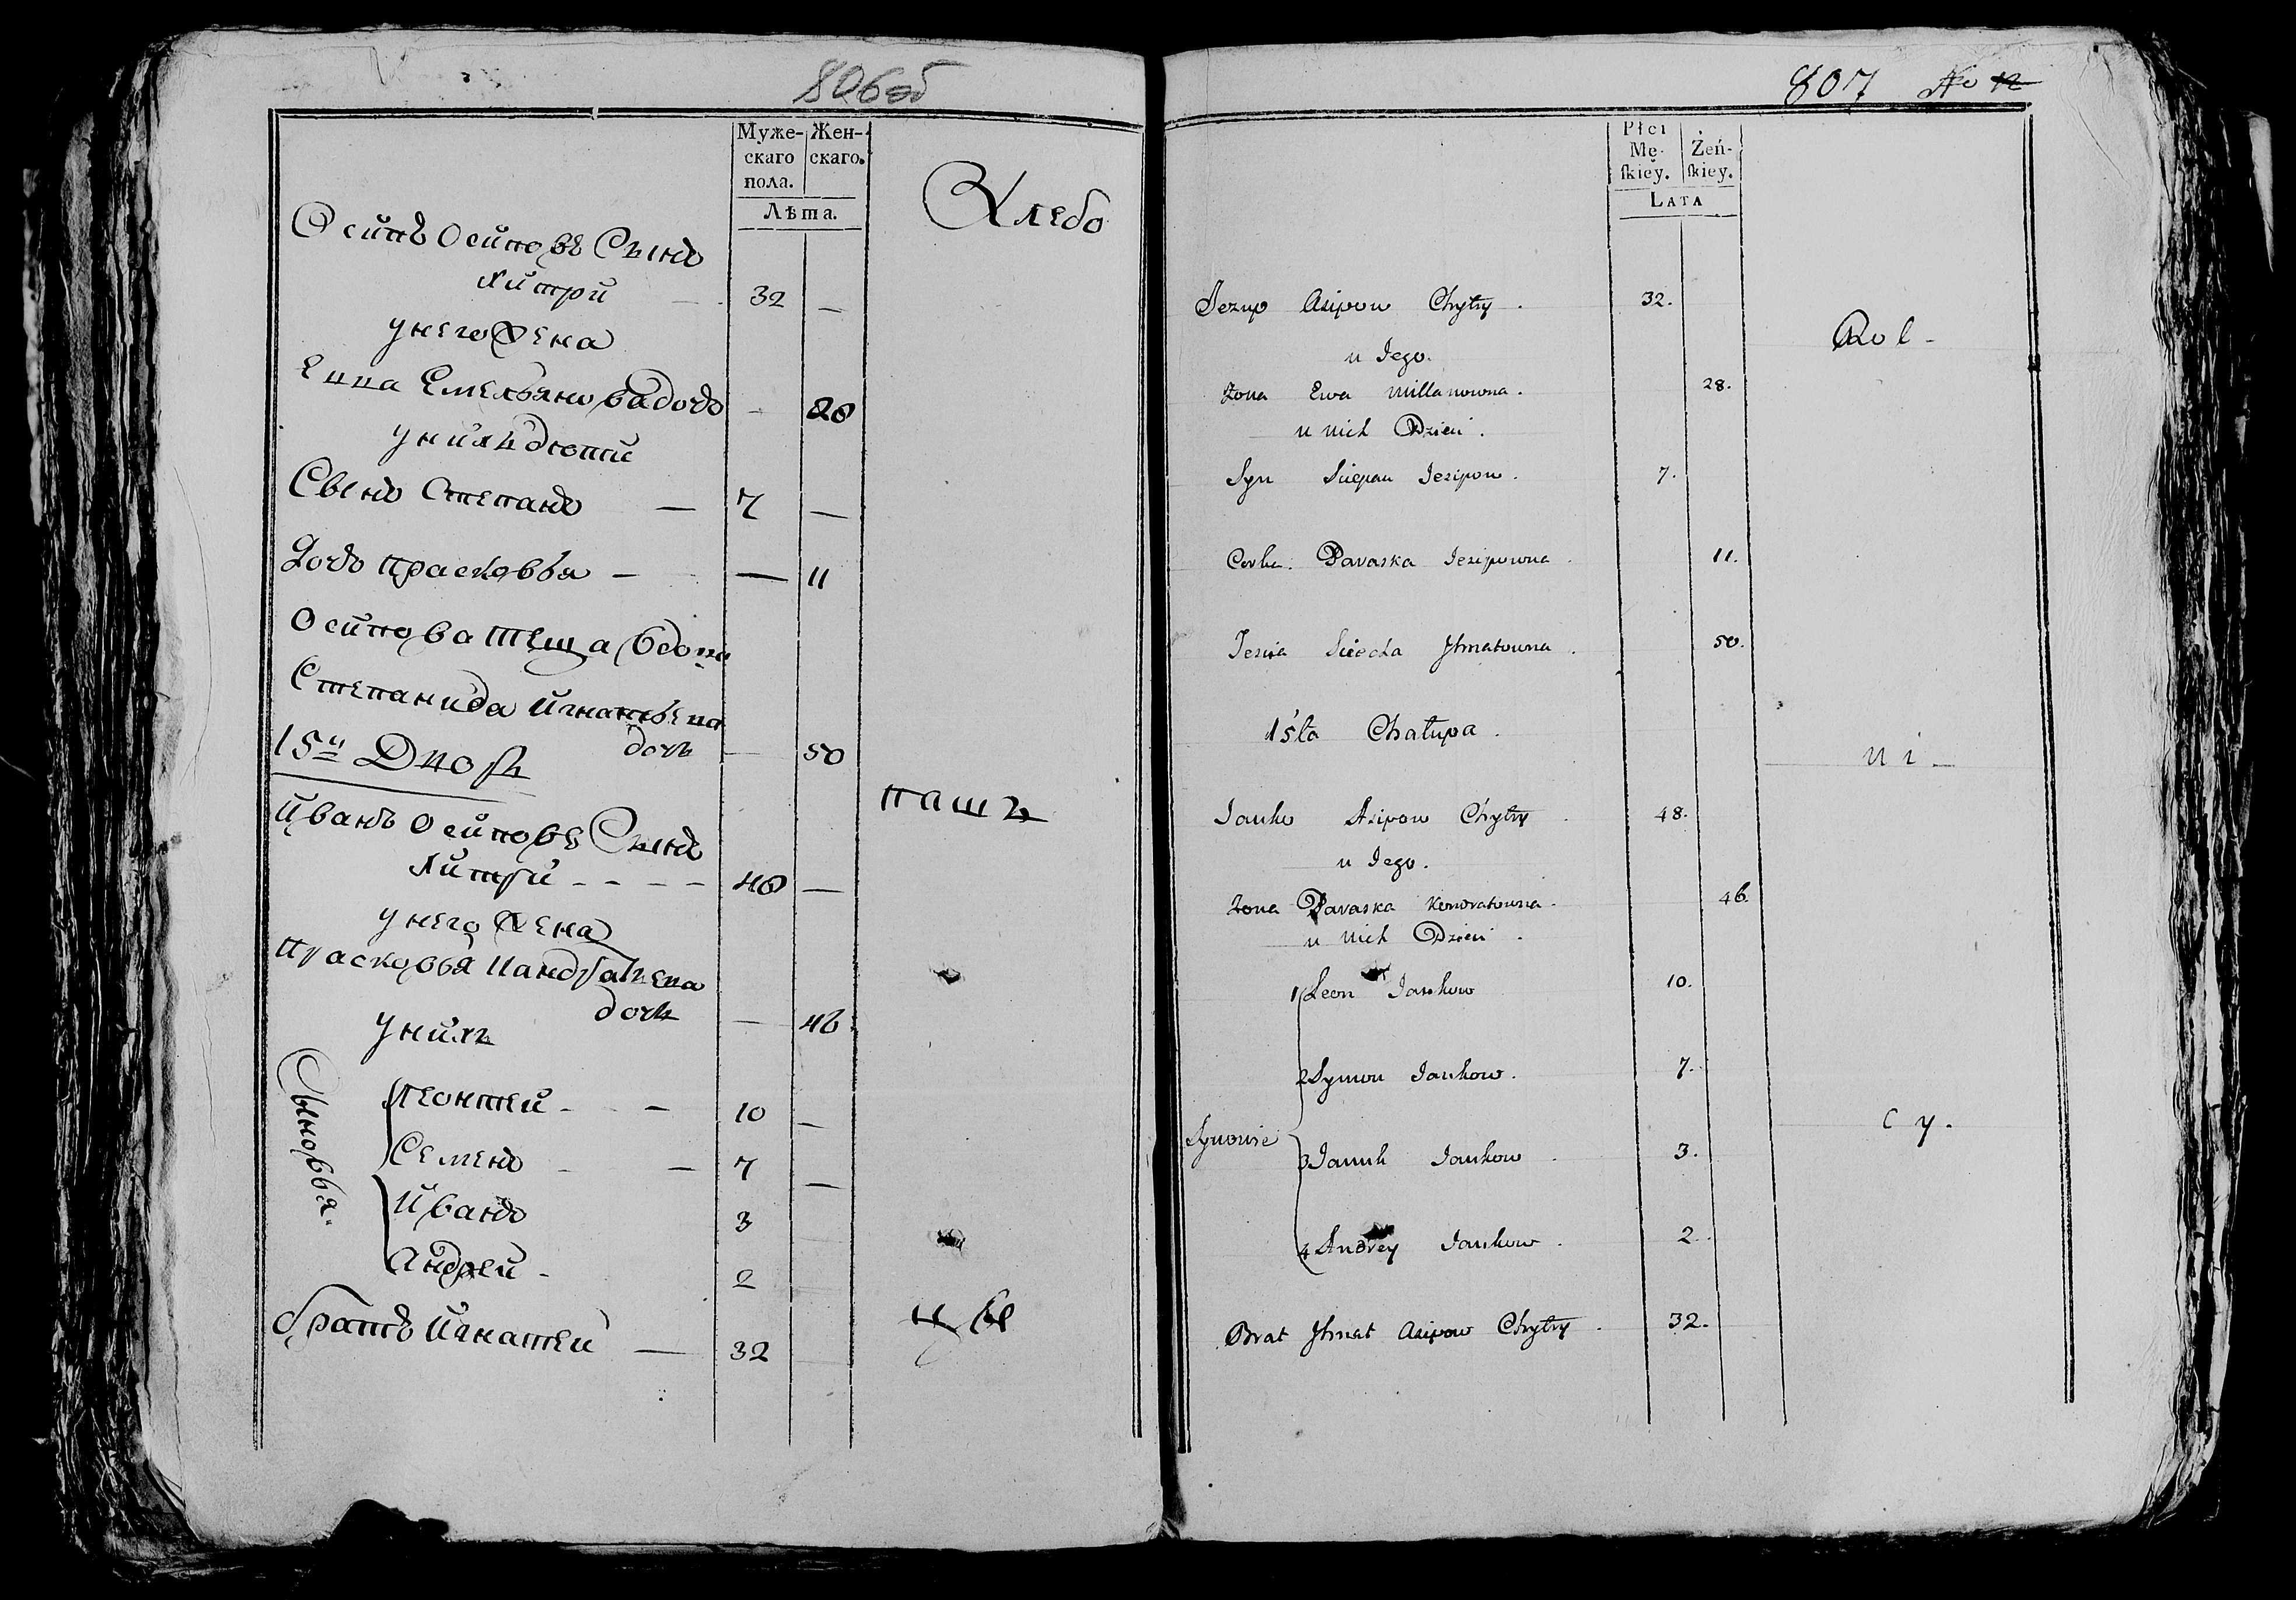 806об
Муже- Жен-
скаго скаго.
пола.
Лѣта.
Хлебо
Осипъ Осиповъ Сынъ
Хитри 32 —
у него Жена
Евва Емельяновадочь - 28
у нихъ дети
Сынъ Степанъ — 7 —
Дочь Прасковья — — 11
Осипова теща вдова
Степанида Игнатьева
дочь — 50
15й Дворъ
пашъ
Иванъ Осиповъ Сынъ
Хитри - - - - 48 —
у него Жена
Прасковья Кандратьева
дочь — 46
у нихъ
Сыновья.
Леонтей - — 10 —
Семенъ - — 7 —
Иванъ 3
Андрей - 2
цы
братъ Игнатей — 32
807 No 12
Płci
Mę- Żeń-
skiey. skiey.
LATA
Jezup Asipow Chytry . 32.
Rol -
u Jego.
Żona Ewa Millanowna . 28.
u nich Dzieci .
Syn Sciepan Jezipow . 7.
Corka . Paraska Jezipowna . 11.
Jeziia Sciecha Ihnatowna . 50.
15ta Chałupa .
ni -
Janko Asipow Chytry . 48.
u Jego .
Żona Paraska Kondratowna . 46
u nich Dzieci .
1 Leon Jankow 10.
2 Symon Jankow . 7.
Synowie
cy .
3 Januk Jankow . 3.
4 Andrey Jankow . 2.
Brat Ihnat Asipow Chytry . 32.